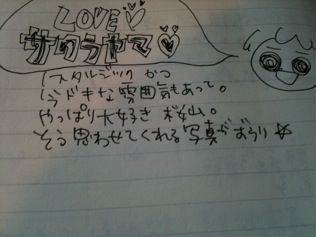 LOVE♡
サクラヤマ♡
ノスタルジック かつ
今ドキな雰囲気もあって。
やっぱり大好き 桜山。
そう思わせてくれる写真がずらり☆